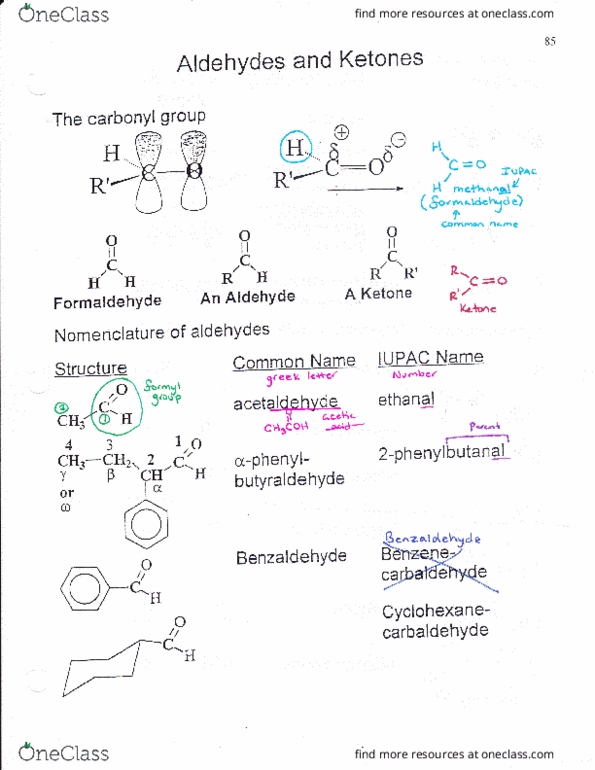 OneClass
find more resources at oneclass.com
85
Aldehydes and Ketones
The carbonyl group
H
R'
C
O
H
R'
C
O
δ
+
δ
−
H
C=O
H
IUPAC
methanal
(formaldehyde)
common name
O
C
H H
Formaldehyde
O
C
R H
An Aldehyde
O
C
R R'
A Ketone
R
C=O
R'
Ketone
Nomenclature of aldehydes
Structure
Common Name
IUPAC Name
greek letter
Number
formyl
group
O
C
CH3
H
2
1
acetaldehyde
ethanal
CH3COH
acetic
acid
Parent
4 3 2 1
CH3 CH2 CH C O
H
γ β α
or
ω
α-phenyl-
butyraldehyde
2-phenylbutanal
Benzaldehyde
Benzaldehyde
Benzene-
carbaldehyde
O
C
H
Cyclohexane-
carbaldehyde
O
C
H
OneClass
find more resources at oneclass.com